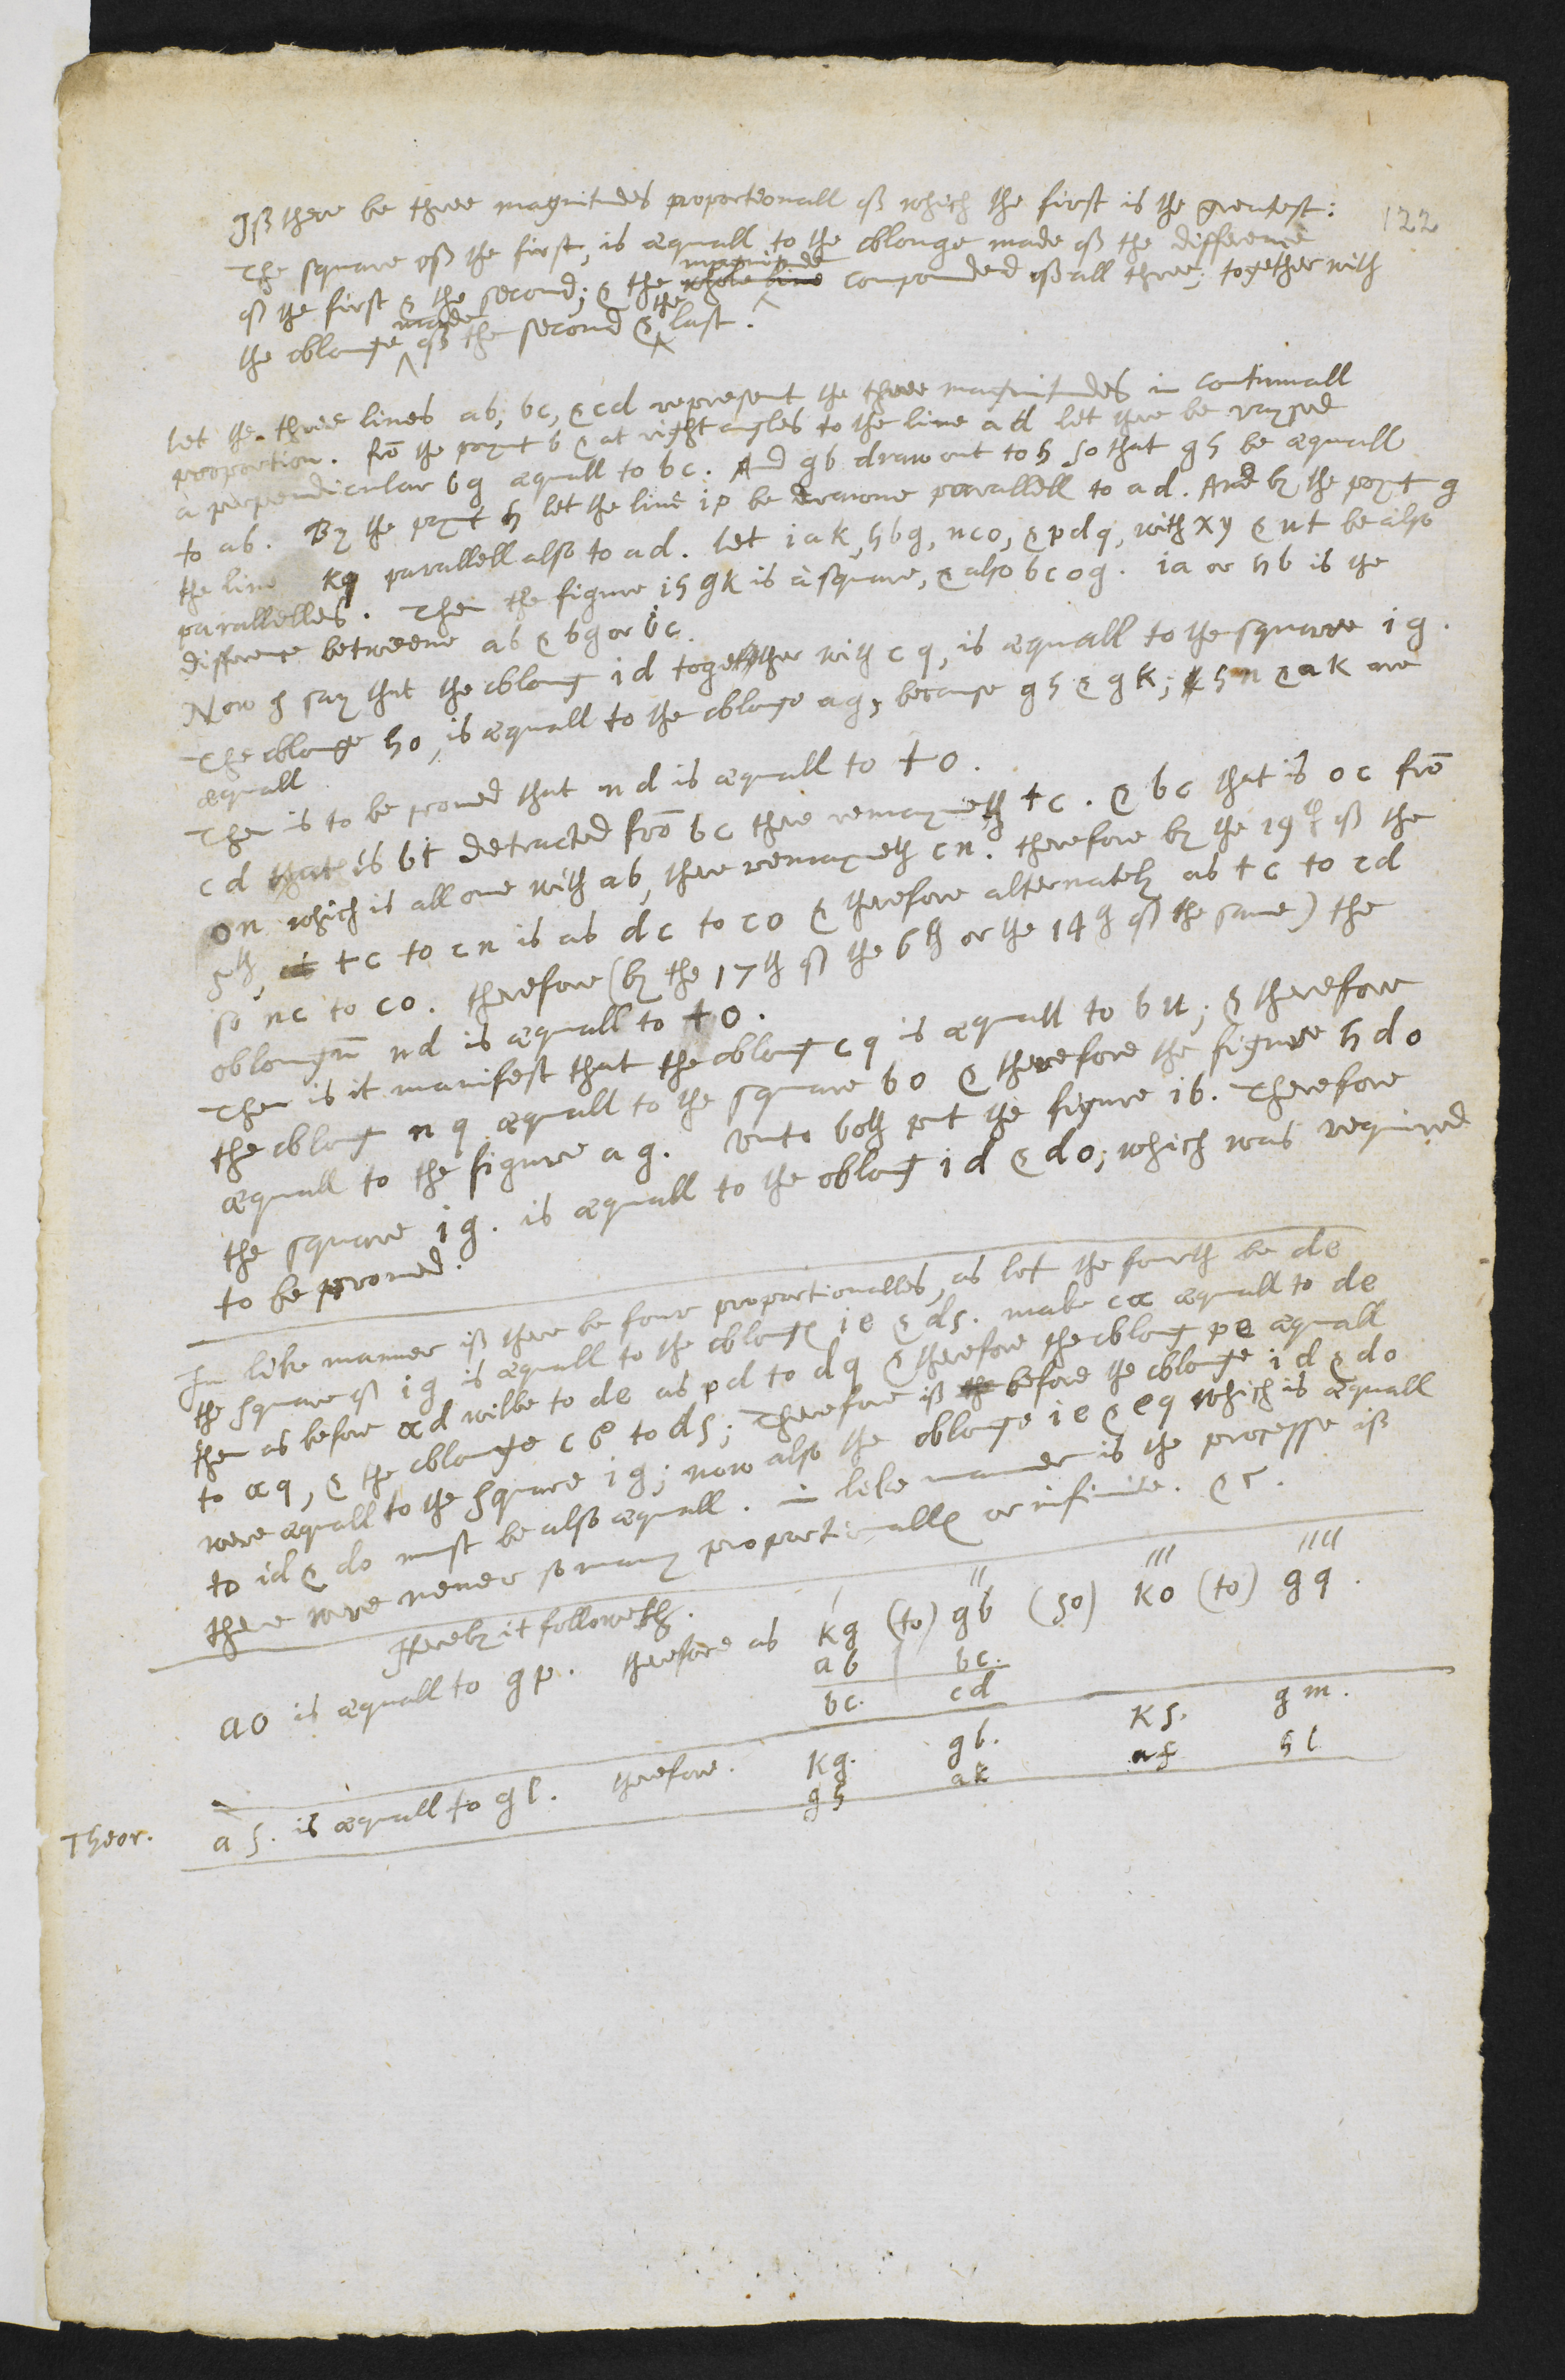 122
If there be three magnitudes proportionall of which the first is the greatest:
The square of the first, is æquall to the oblonge made of the difference
of the first & the second; & the whole line magnitude compounded of all three; together with
the oblonge made of the second & the last.
Let the three lines ab, bc, & cd represent the three magnitudes in continuall
proportion. frō the poynt b & at right angles to the line ad let there be raysed
a perpendicular bg æquall to bc. And gb draw out to h so that gh be æquall
to ab. By the poynt h let the line ip be drawne parallell to ad. And by the poynt g
the line kq parallell also to ad. Let iak, hbg, nco, & pdq, with xy & ut be also
parallelles. Then the figure ihgk is a square, & also bcog. ia or hb is the
difference betweene ab & bg or bc.
Now I say that the oblong id together with cq, is æquall to the square ig.
The oblonge ho, is æquall to the oblonge ag, because gh & gk; hn & ak are
æquall
Then is to be proued that nd is æquall to to.
cd that is bt detracted frō bc there remayneth tc. & bc that is oc frō
on which is all one with ab, there remayneth cn. therefore by the 19th of the
5th, tc to cn is as dc to co & therefore alternately as tc to cd
so nc to co. therefore (by the 17th of the 6th or the 14th of the same) the
oblongū nd is æquall to to.
Then is it manifest that the oblong cq is æquall to bu; & therefore
the oblong nq æquall to the square bo & therefore the figure hdo
æquall to the figure ag. Unto both put the figure ib. Therefore
the square ig. is æquall to the oblong id & do; which was required
to be proued.
In like manner if there be four proportionalles, as let the fourth be de
the square of ig is æquall to the oblonges ie & ds. make cα æquall to de
then as before αd wilbe to de as pd to dq & therefore the oblong pe æquall
to αq, & the oblonge cβ to ds; Therefore if before the oblonge id & do
were æquall to the square ig; now also the oblonge ie & eq which is æquall
to id & do must be also æquall. in like manner is the processe if
there were neuer so many proportionalles or infinite. &c.
Hereby it followeth.
ao is æquall to gp. therefore as kg (to) gb (so) ko (to) gq.
ab bc.
bc. cd
Theor. as. is æquall to gl. therefore. kg. gb. ks. gm.
gh ak af hl